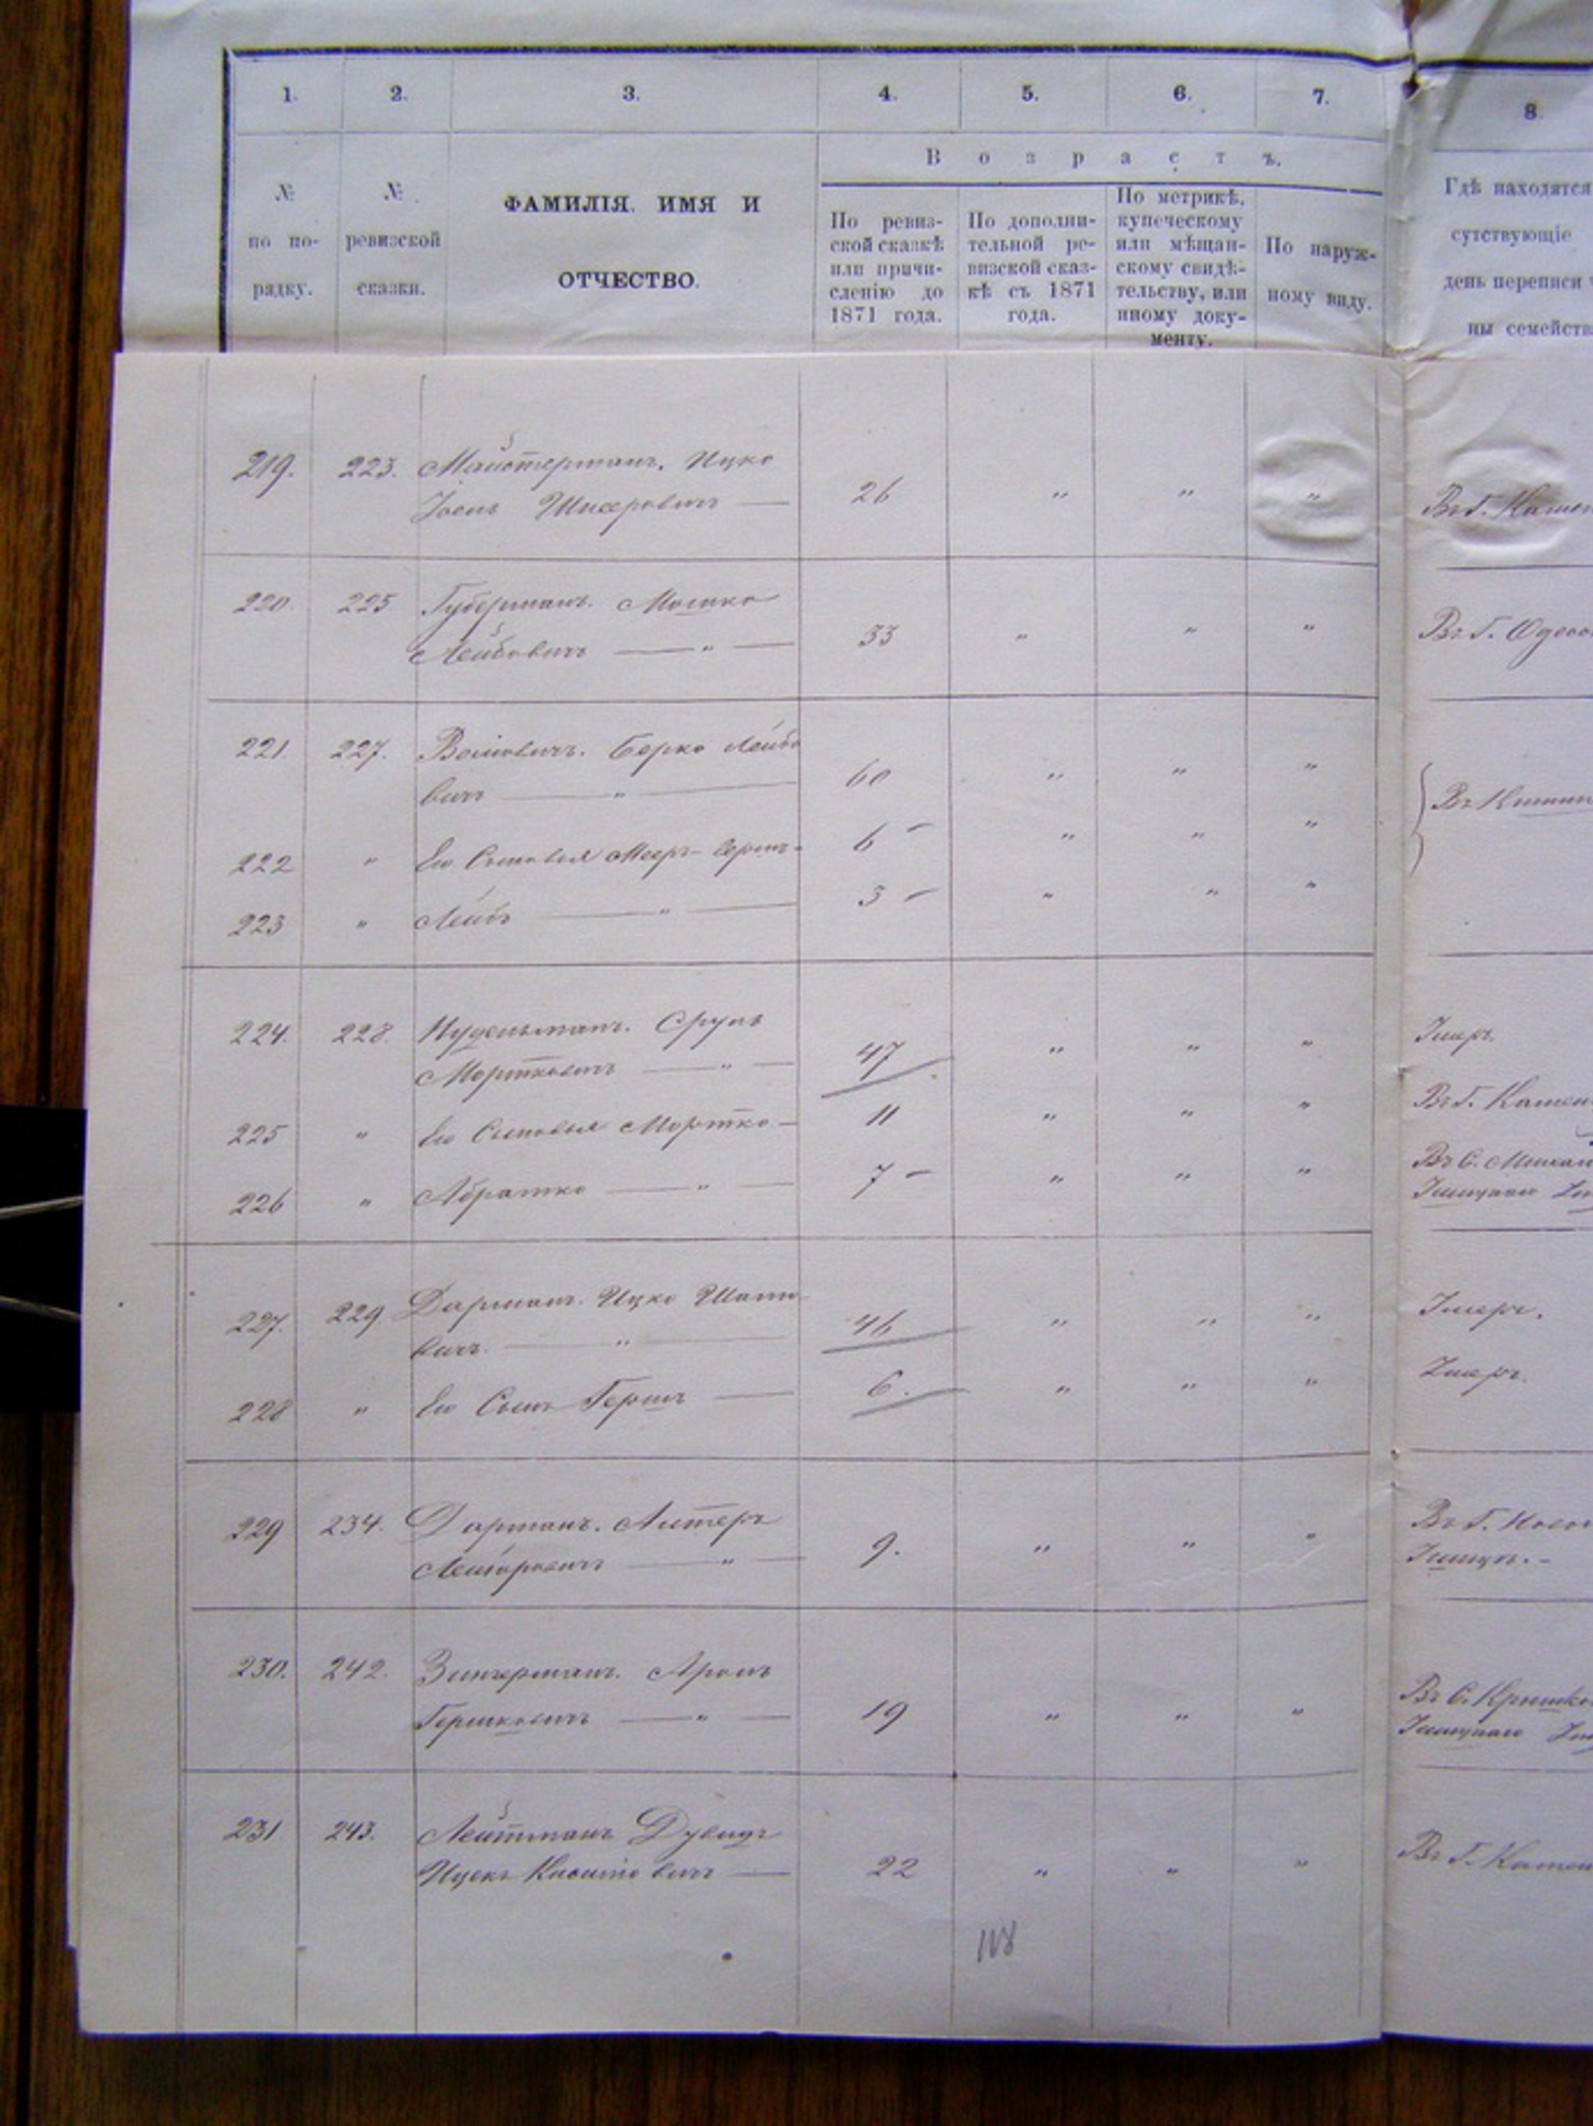 1. 2. 3. 4. 5. 6. 7. 8.
В о з р а с т ъ.
№ по по- рядку.
№ ревизской сказки.
ФАМИЛІЯ. ИМЯ И
ОТЧЕСТВО.
По ревиз-
ской сказкѣ
или причи-
сленію до
1871 года.
По дополни-
тельной ре-
визской сказ-
кѣ съ 1871
года.
По метрикѣ,
купеческому
или мѣщан-
скому свидѣ-
тельству, или
иному доку-
менту.
По наруж-
ному виду.
Гдѣ находятся
сутствующіе
день переписи
ны семейств
219. 223. Майстерманъ. Ицко
Іосль 26 " " " Въ Г. Камен
220. 225 Губерманъ. Мошко
Лейбовичъ — " — 33 " " " Въ Г. Одесс
221. 227. Берко Лейбо
вичъ — " — 60 " " "
222 " Его Сыновья Мееръ- 6 - " " "
223 " Лейбъ — " — 3 - " " "
224. 228. Нудельманъ. Сруль
Мортковичъ — " — 47 " " " Умеръ.
225 " Его Сыновья Мортко — 11 " " " Въ Г. Камен
226 " Абрамко — " — 7 - " " " Въ С.
227. 229 Дарманъ. Ицко
вичъ. — " — 46 " " " Умеръ.
228 " Его Сынъ Гершъ — 6. " " " Умеръ.
229 234. Дарманъ. Алтеръ
Лейзоровичъ — " — 9. " " " Въ Г.
230. 242. Зингерманъ. Аронъ
Гершковичъ — " — 19 " " " Въ С.
231 243. Лейтманъ Дувидъ
Ицекъ — 22 " " " Въ Г. Камен
118